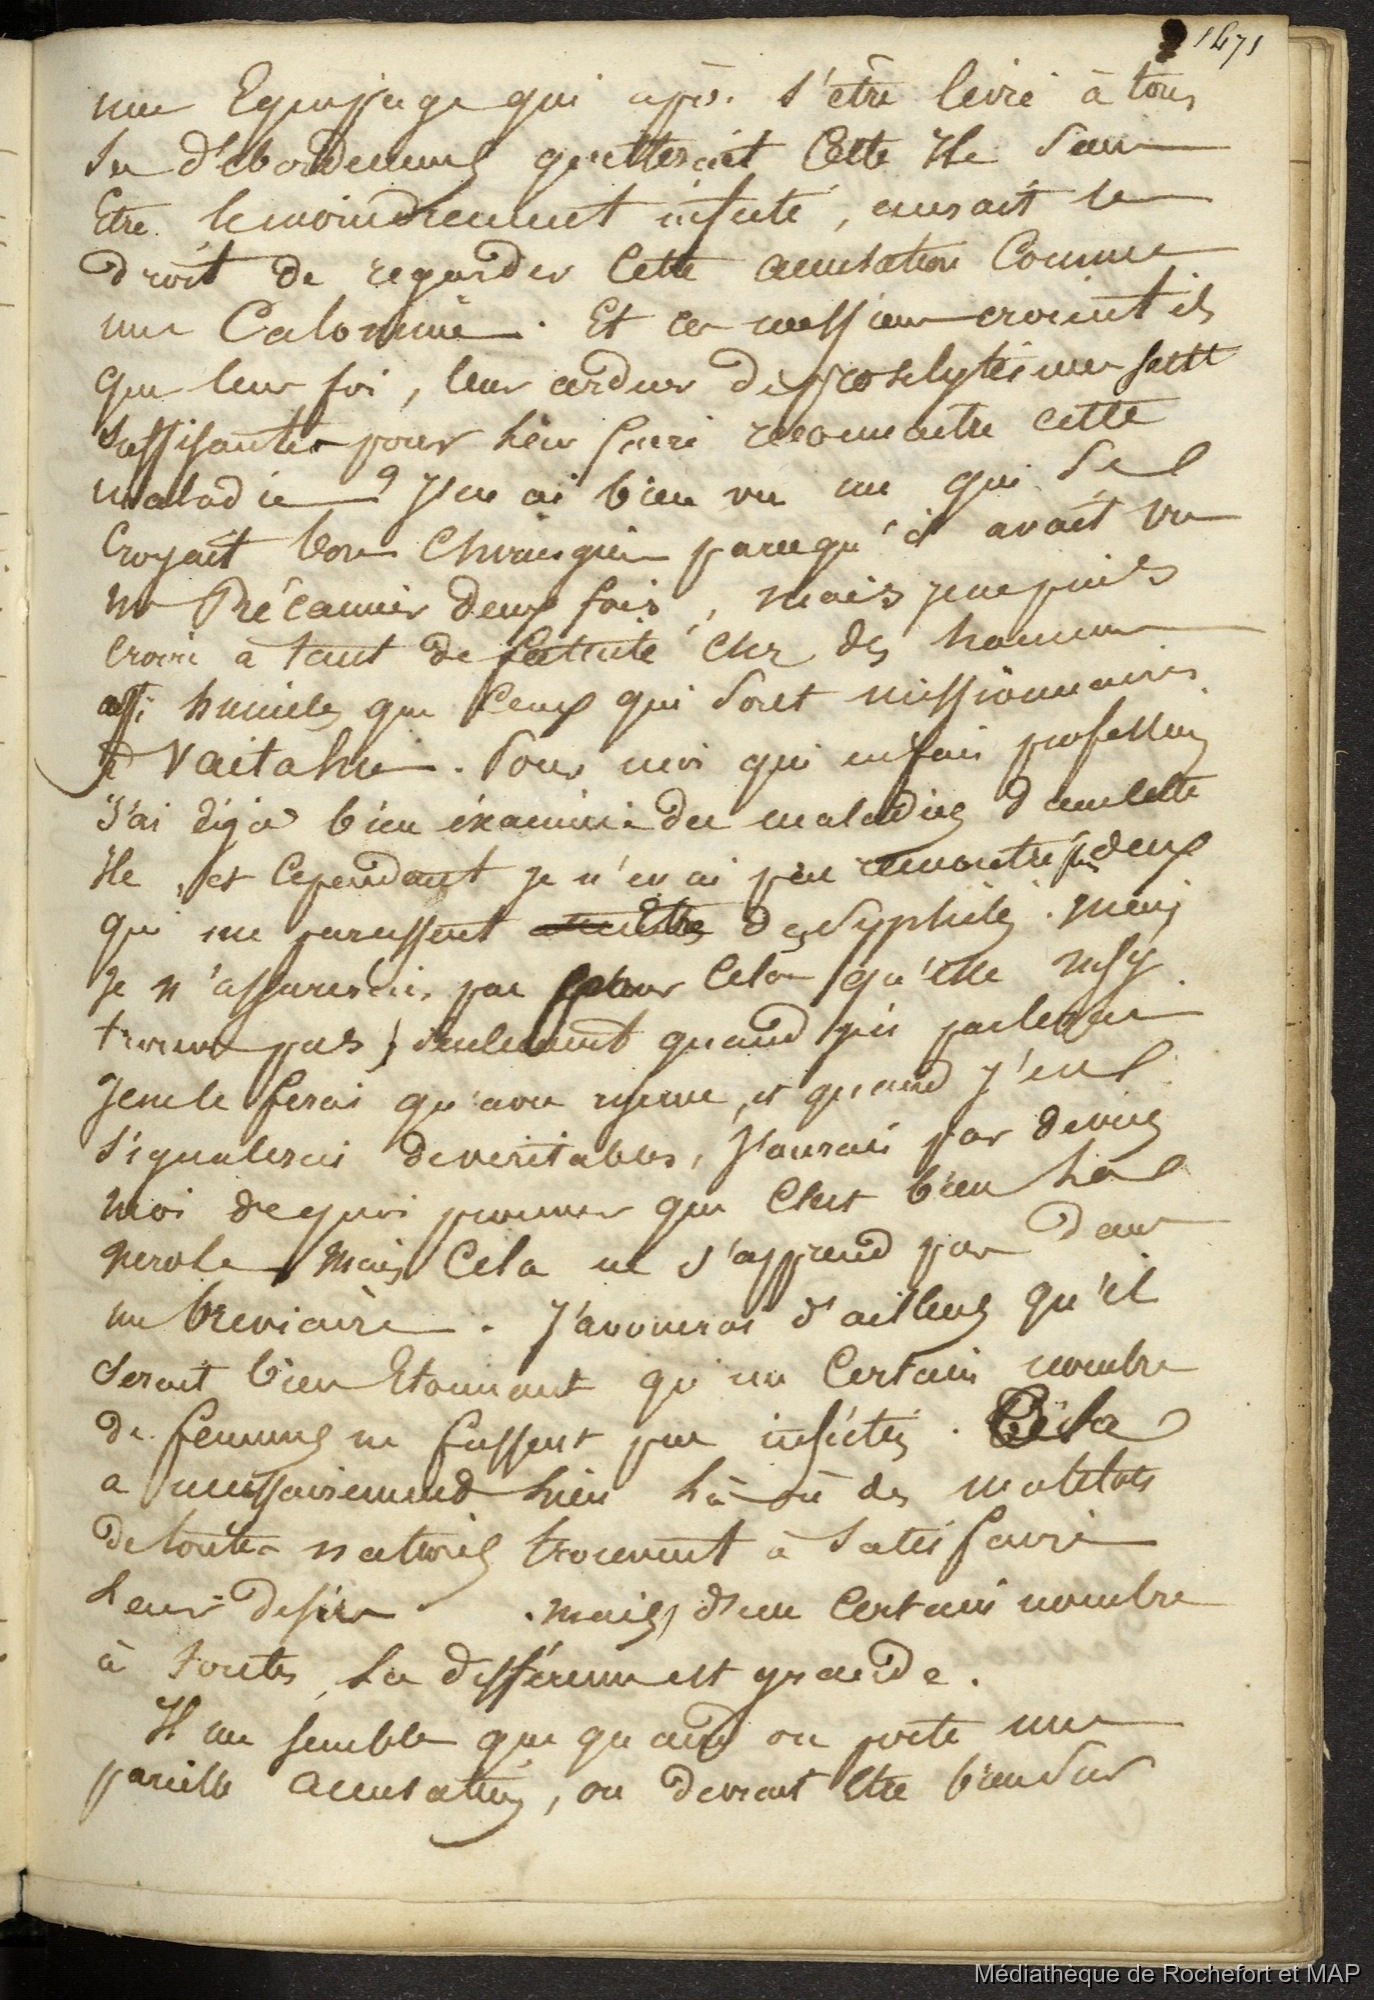 1471
une Equipage qui après s'être livré à tous
ses débordemens quitterait Cette Ile sans
Etre le moindrement infecté, aurait le
droit de regarder Cette accusation Comme
une Calomnie. Et ces messieurs croient ils
que leur foi, leur ardeur de proselytisme soit
suffisante pour leur faire reconnaitre cette
maladie ? J'en ai bien vu un qui se
Croyait bon Chirurgien parcequ'il avait vu
mr Récamier deux fois, mais je ne puis
croire à tant de fatuité chez des hommes
assi humbles que Ceux qui sont missionnaires
à Vaitahu. Pour moi qui en fais profession
J'ai déja bien examiné des maladies dans cette
Ile, et Cependant je n'en ai pas rencontré deux
qui me parussent Etre des Syphilis. Mais
Je n'assurerais pas pour Cela qu'elle ne s'y
trouve pas; seulement quand j'en parlerai
Je ne le ferai qu'avec reserve, et quand j'en
signalerai de veritables, J'aurai par devers
moi de quoi prouver que C'est bien la
verole, Mais Cela ne s'apprend pas dans
un breviaire. J'avouerai d'ailleurs qu'il
serait bien Etonnant qu'un Certain nombre
de femmes ne fussent pas infectées. Cela
a necessairement lieu là où des matelots
de toutes nations trouvent à satisfaire
leur desir . mais, d'un Certain nombre
à toutes, la différence est grande.
Il me semble que quand on porte une
pareille accusation, on devrait Etre bien sur
Médiathèque de Rochefort et MAP